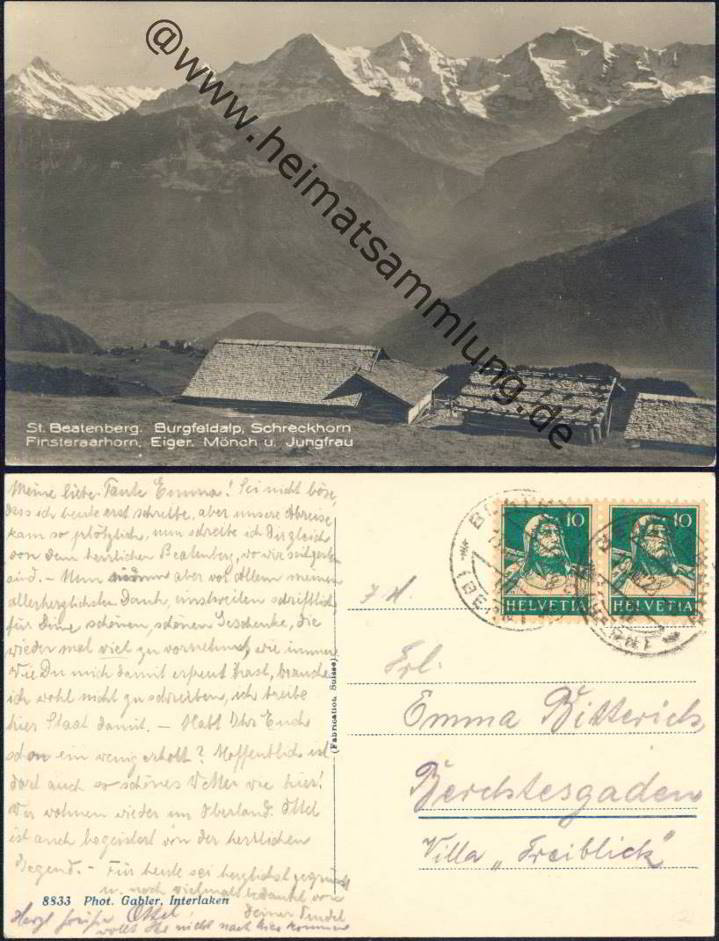 @www.heimatsammlung.de
St. Beatenberg. Burgfeldalp, Schreckhorn
Finsteraarhorn, Eiger. Mönch u. Jungfrau
Meine liebe Tante Emma! Sei nicht böse,
dass ich heute erst schreibe, aber unsere Abreise
kam so plötzlich, nun schreibe ich Dir gleich
von dem herrlichen Beatenberg, wo wir seit gestern
sind. - Nun aber vor Allem meinen
allerherzlichsten Dank, einstweilen schriftlich
für Deine schönen, schönen Geschenke, die
wieder mal viel zu vornehm wie immer
Wie Du mich damit erfreut hast, brauche
ich wohl nicht zu schreiben, ich treibe
hier Staat damit. - Habt Ihr Euch
schon ein wenig erholt? Hoffentlich ist
dort auch so schönes Wetter wie hier!
Wir wohnen wieder im Oberland. Ottel
ist auch begeistert von der herrlichen
Gegend. - Für heute sei herzlichst gegrüsst
u. noch vielmals bedankt von
Deiner
Herzl. Grüße Ottel
wollt Ihr nicht nach hier kommen
8833 Phot. Gabler, Interlaken
(Fabrication Suisse)
10 10
HELVETIA HELVETIA
(BERN)
Frl.
Emma Bitterich
Berchtesgaden
Villa „Freiblick"